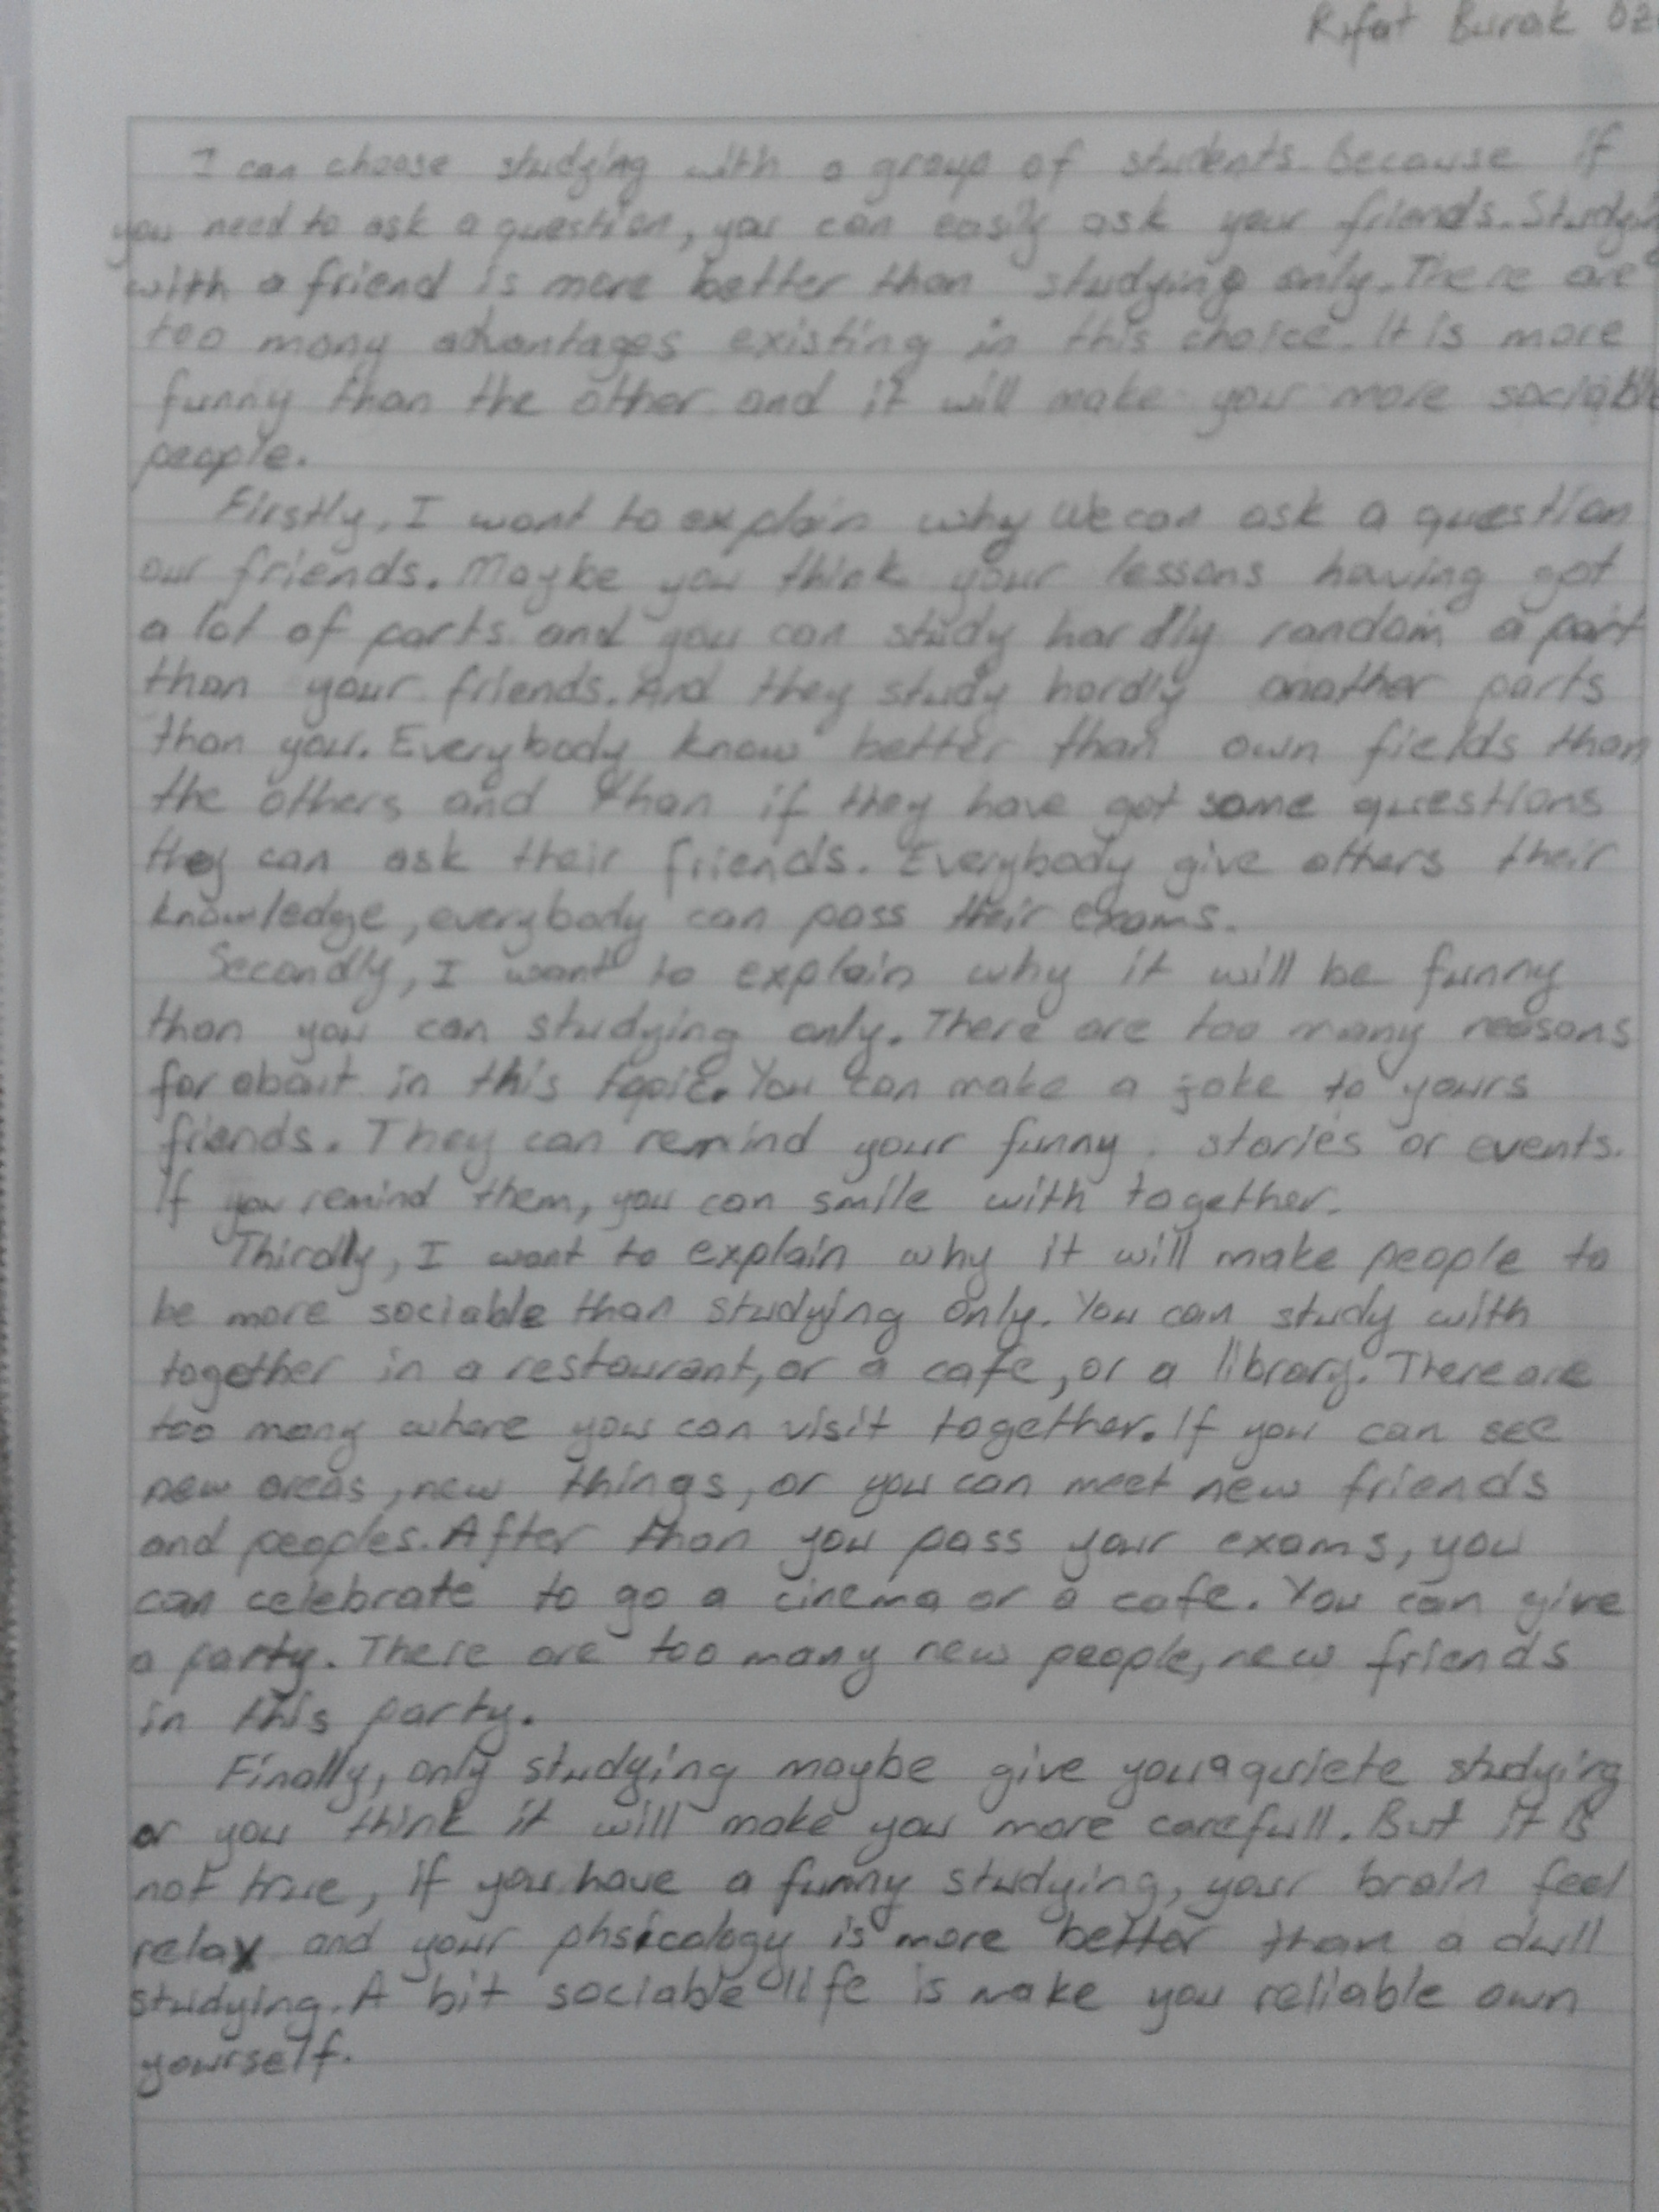 Rıfat Burak
I can choose studying with a group of students. Because if
you need to ask a question, you can easily ask your friends. Studyin
with a friend is more better than studying only. There are
too many advantages existing in this choice. It is more
funny than the other and it will make your more sociable
people.
Firstly, I want to explain why we can ask a question
our friends. Maybe you think your lessons having got
a lot of parts and you can study hardly random a part
than your friends. And they study hardly another parts
than you. Everybody know better than own fields than
the others and than if they have got some questions
they can ask their friends. Everybody give others their
knowledge, everybody can pass their exams.
Secondly, I want to explain why it will be funny
than you can studying only. There are too many reasons
for about in this topic. You can make a joke to yours
friends. They can remind your funny stories or events.
If you remind them, you can smile with together.
Thirdly, I want to explain why it will make people to
be more sociable than studying only. You can study with
together in a restaurant, or a cafe, or a library. There are
too many where you can visit together. If you can see
new areas, new things, or you can meet new friends
and peoples. After than you pass your exams, you
can celebrate to go a cinema or a cafe. You can give
a party. There are too many new people, new friends
in this party.
Finally, only studying maybe give you a quiete studying
or you think it will make you more carefull. But it is
not true, if you have a funny studying, your brain feel
relax and your phsicology is more better than a dull
studying. A bit sociable life is make you reliable own
yourself.